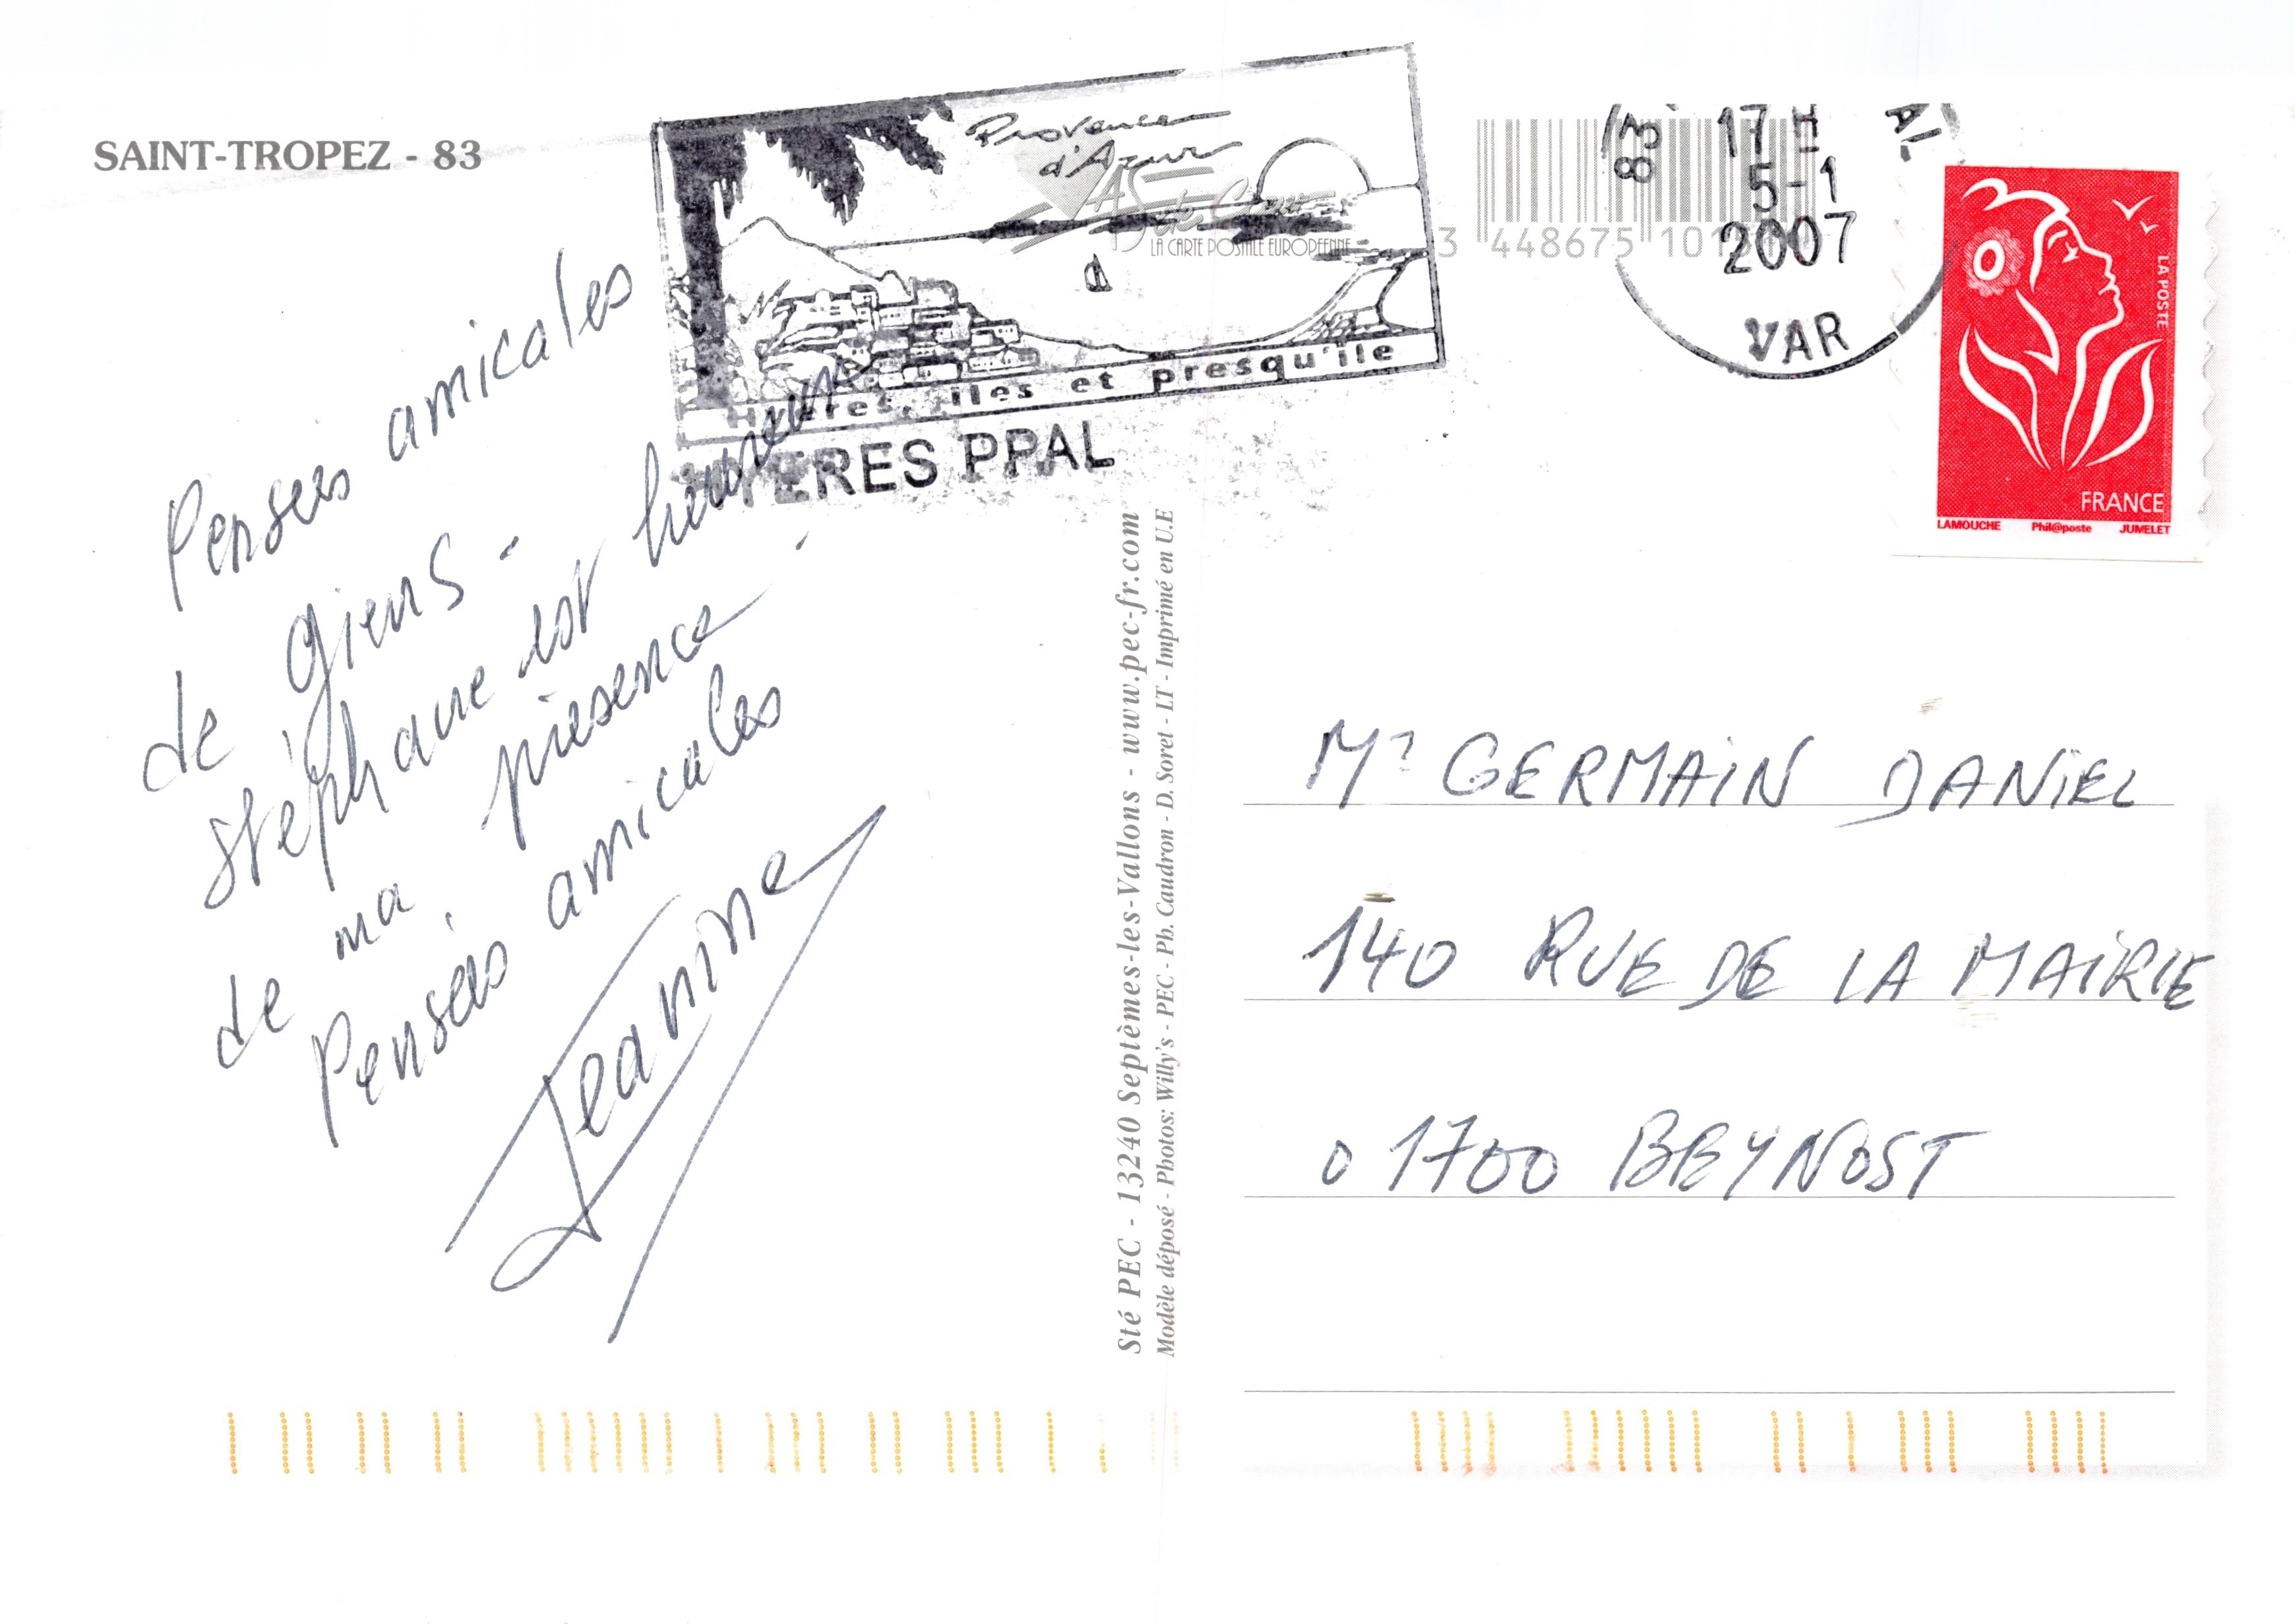 SAINT-TROPEZ - 83
Provence
d'Azur
LA CARTE POSTALE EUROPEENNE
Hyères, îles et presqu'île
HYERES PPAL
3 448675 101
83
17 H
AL
5-1
2007
VAR
LA POSTE
FRANCE
LAMOUCHE Phil@poste JUMELET
Pensées amicales
de Giens -
Stéphane est heureux
de ma présence -
Pensées amicales
Jeannine
Sté PEC - 13240 Septèmes-les-Vallons - www.pec-fr.com
Modèle déposé - Photos: Willy's - PEC - Ph. Caudron - D. Soret - LT - Imprimé en U.E
Mr GERMAIN DANIEL
140 RUE DE LA MAIRIE
01700 BEYNOST